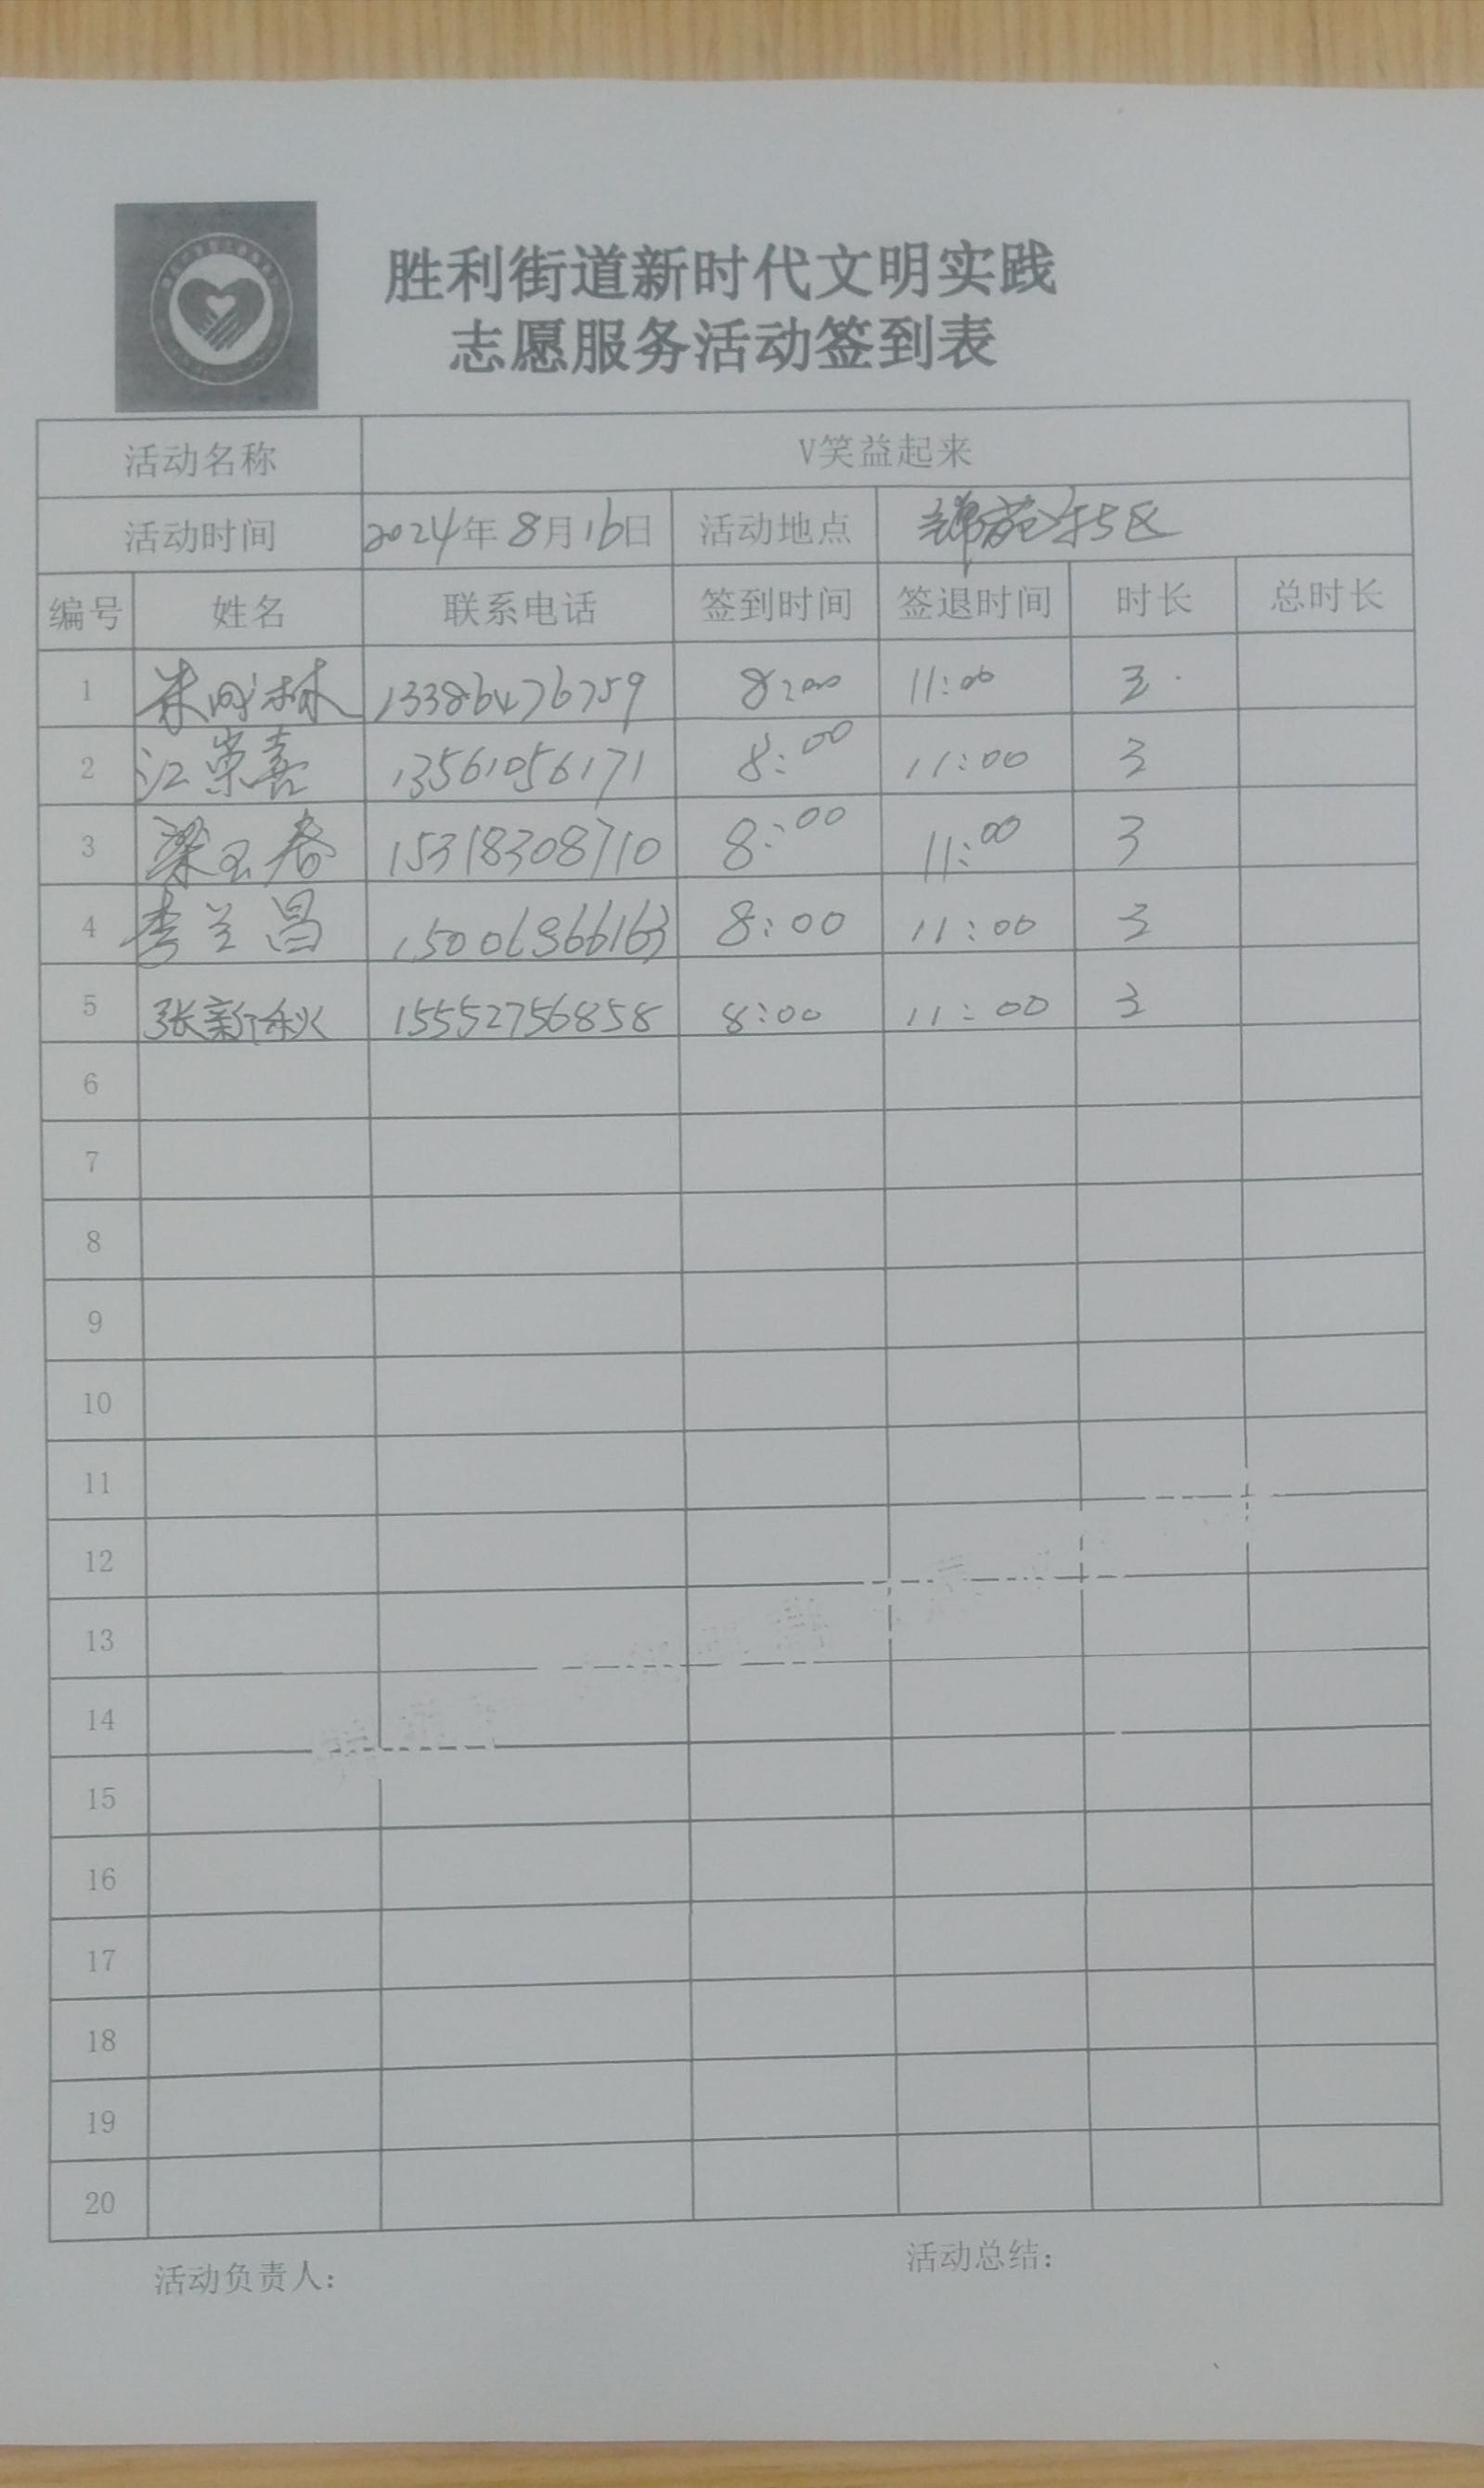 胜利街道新时代文明实践
志愿服务活动签到表
活动名称 V笑益起来
活动时间 2024年8月16日 活动地点 锦苑东5区
编号 姓名 联系电话 签到时间 签退时间 时长 总时长
1 13386476759 8:00 11:00 3
2 江崇喜 13561056171 8:00 11:00 3
3 梁玉春 15318308710 8:00 11:00 3
4 李兰昌 15006866163 8:00 11:00 3
5 张新秋 15552756858 8:00 11:00 3
6
7
8
9
10
11
12
13
14
15
16
17
18
19
20
活动负责人： 活动总结：